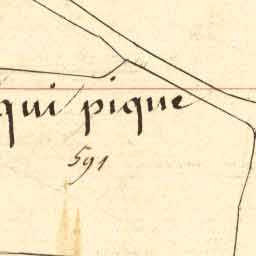 qui pique
591